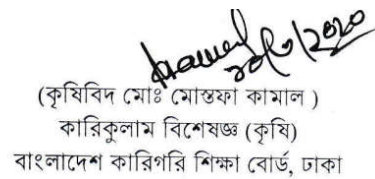 (কৃষিবিদ মোঃ মোস্তফা কামাল )
কারিকুলাম বিশেষজ্ঞ (কৃষি)
বাংলাদেশ কারিগরি শিক্ষা বোর্ড, ঢাকা